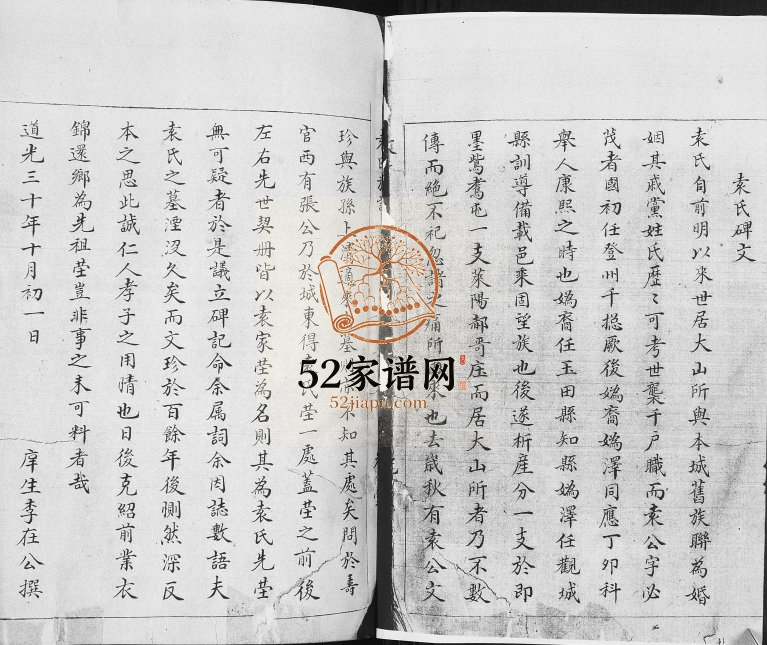 袁氏碑文
袁氏自前明以來世居大山所與本城舊族聯為婚
姻其戚黨姓氏歷々可考世襲千戶職而袁公字必
茂者國初任登州千揔厥後嫣裔嫣澤同應丁卯科
舉人康熙之時也嫣裔任玉田縣知縣嫣澤任觀城
縣訓導備載邑乘固望族也後遂析産分一支於即
墨鴬耄屯一支萊陽郝哥庄而居大山所者乃不數
傳而絶不祀忽諸之痛所來也去歲秋有袁公文
珍與族孫上清通來墓不知其處矣問於壽
官西有張公乃於城東得袁氏塋一處蓋塋之前後
左右先世契册皆以袁家塋為名則其為袁氏先塋
無可疑者於是議立碑記命余属詞余因誌數語夫
袁氏之墓湮没久矣而文珍於百餘年後惻然深反
本之思此誠仁人孝子之用情也日後克紹前業衣
錦還鄉為先祖塋豈非事之未可料者哉
道光三十年十月初一日 庠生李在公撰
52家谱网
52jiapu.com